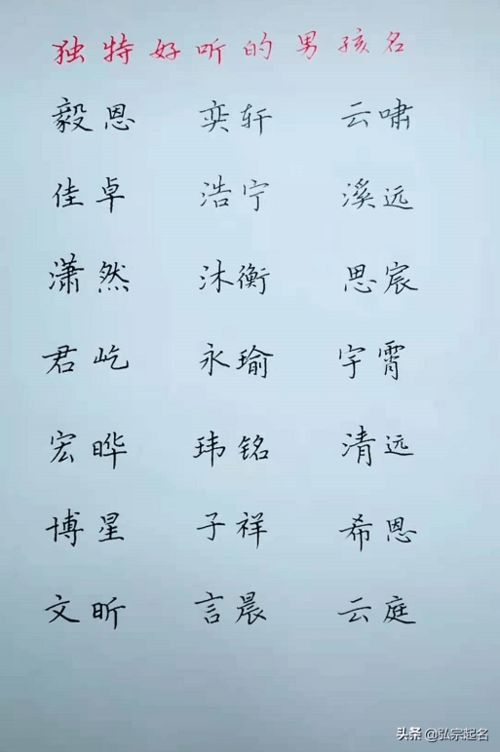 独特好听的男孩名
毅恩 奕轩 云啸
佳卓 浩宁 溪远
潇然 沐衡 思宸
君屹 永瑜 宇霄
宏晔 玮铭 清远
博星 子祥 希恩
文昕 言晨 云庭
头条 @弘宗起名